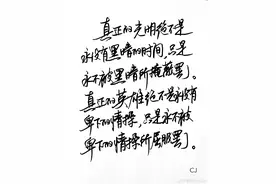 真正的光明绝不是
永没有黑暗的时间,只是
永不被黑暗所掩蔽罢了。
真正的英雄绝不是永没有
卑下的情操,只是永不被
卑下的情操所屈服罢了。
CJ